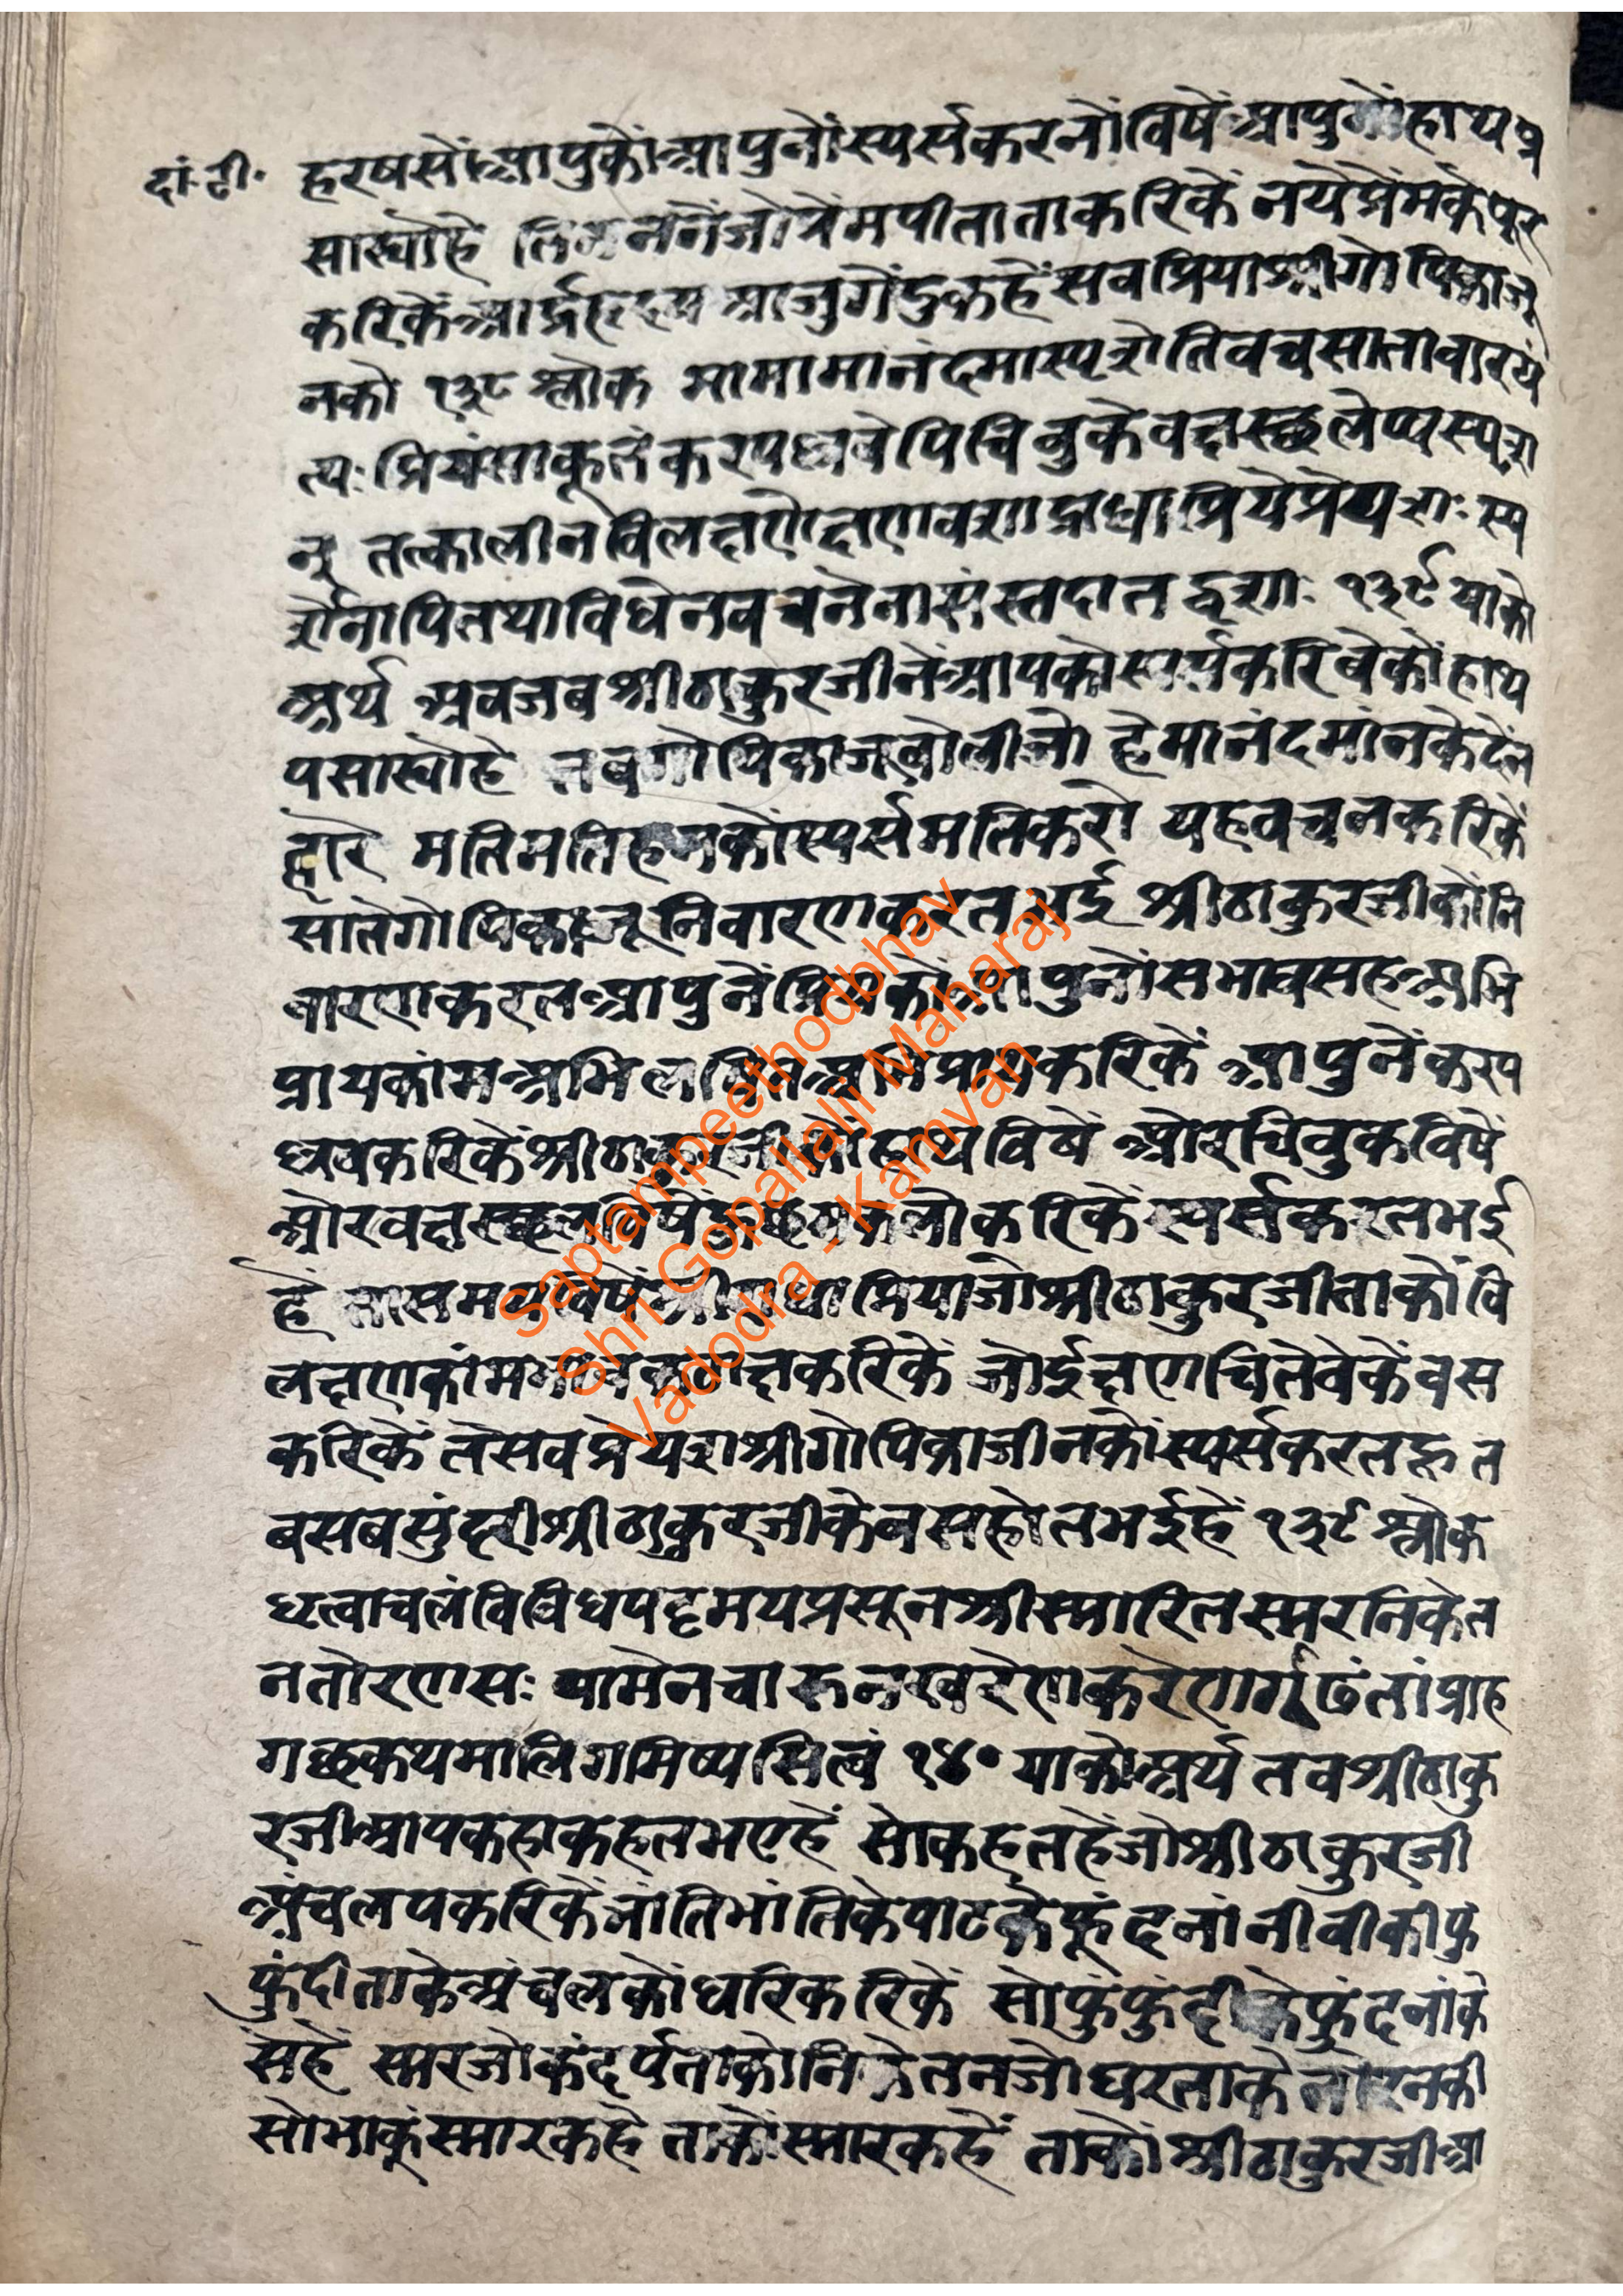 दां.टी.
हरषसोंआपुकोंआपुनोंस्पर्सकरनोंविषेंआपुनोंहाथप
सार्योहै तिननेंजोप्रेमपीताताकरिकें नयेप्रेंमकेपूर
करिकेंआर्द्रहृदय आजुगेंदुकहेंसबप्रियाश्रीगोपिकाजू
नकौ १३८ श्लोक मामामानंदमास्पृशेतिवचसातावारयं
त्यःप्रियंसाकूतंकरपल्लवेपिचिबुकेवक्षस्छलेप्यस्पृश
न् तत्कालीनविलक्षणेक्षणवशाद्राधाप्रियेप्रेयशः स्प
र्शेनापितथाविधेनवचनेनासंस्तदातद्वशाः १३९ याको
अर्थ अबजबश्रीठाकुरजीनेंआपकोस्पर्सकरिबेकोंहाथ
पसार्योहै तबगोपिकाजूबोलीजो हेमानंदमांनकेदेंन
हारे मतिमतिहमकोंस्पर्समतिकरो यहवचनकरिकें
सोतेगोपिकाजूनिवारणकरतभई श्रीठाकुरजीकोंनि
वारणकरतआपुनेंप्रियकोंआपुनोंसभावसहअभि
प्रायकांमअभिलषितअभिप्रायकरिकें आपुनेंकरप
ल्लवकरिकेंश्रीठाकुरजीकोंहाथविषें औरचिबुकविषें
औरवक्षस्छलविषें करिकेंस्पर्सकरतभई
हें तासमयविषेंश्रीराधाप्रियाजोश्रीठाकुरजीताकोंवि
लक्षणकांम कटाक्षकरिकें जोईक्षणचितेवेकेंवस
करिकें तेसबप्रेयशश्रीगोपिकाजीनकोंस्पर्सकरतहूत
बसबसुंदरीश्रीठाकुरजीकेबसहोतभईहें १३९ श्लोक
धृत्वाचलंविविधपट्टमयप्रसूनश्रीस्मारितस्मरनिकेत
नतोरणसः वामेनचारुनखरेणकरेणगर्गूढंतांप्राह
गछकथमालिगमिष्यसित्वं १४० याकोअर्थ तबश्रीठाकु
रजीआपकहाकहतभएहें सोकहतहेंजोश्रीठाकुरजी
अंचलपकरिकेंभांतिभांतिकेपाटकेफूंदनांनीवीकीफु
फुंदीताकेअंचलकोंधरिकरिकें सोफुंफुंदीकेफुंदनांके
संहें स्मरजोकंदर्पताकोनिकेतनजोघरताकेतोरनकी
सोभाकुंस्मारकहै ताकोंस्मारकहें ताकोंश्रीठाकुरजीआ